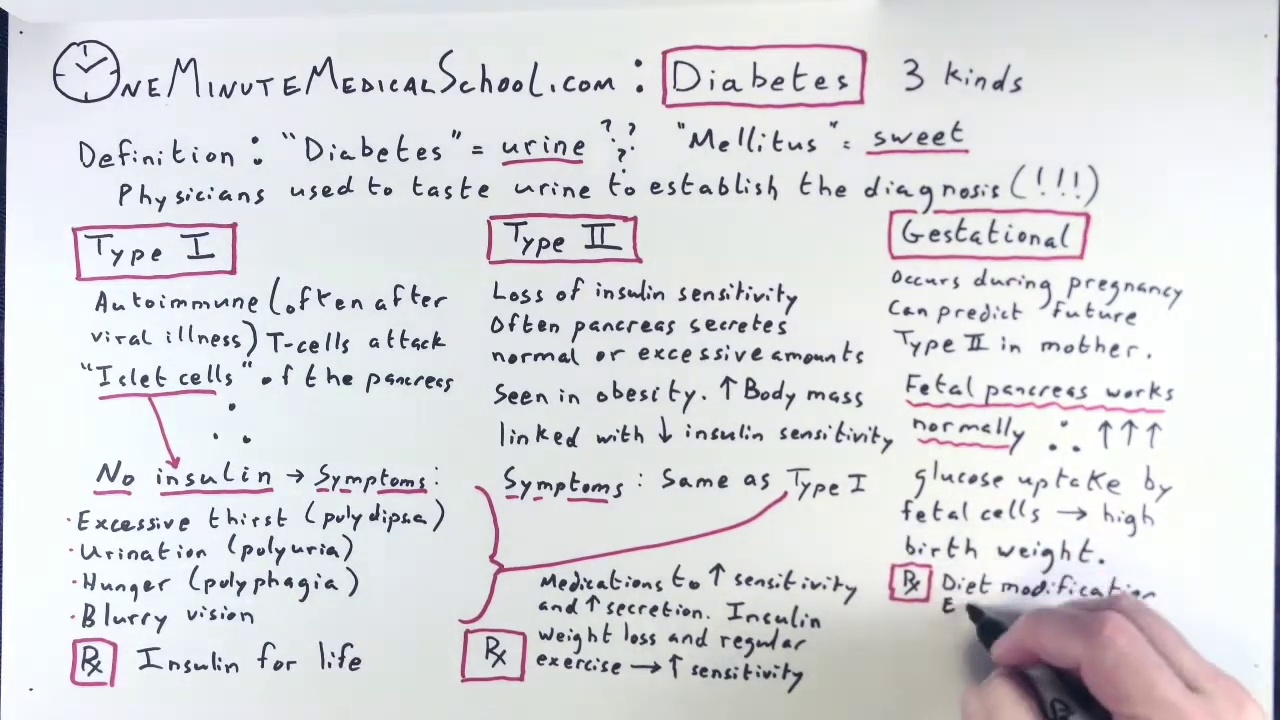 OneMinuteMedicalSchool.com : Diabetes 3 kinds
Definition : "Diabetes" = urine ??? "Mellitus" = sweet
Physicians used to taste urine to establish the diagnosis (!!!)
Type I
Autoimmune (often after
viral illness) T-cells attack
"Islet cells" of the pancreas
∴
No insulin → Symptoms :
· Excessive thirst (polydipsa)
· Urination (polyuria)
· Hunger (polyphagia)
· Blurry vision
Rx Insulin for life
Type II
Loss of insulin sensitivity
Often pancreas secretes
normal or excessive amounts
Seen in obesity. ↑ Body mass
linked with ↓ insulin sensitivity
Symptoms : Same as Type I
Medications to ↑ sensitivity
and ↑ secretion. Insulin
weight loss and regular
Rx exercise → ↑ sensitivity
Gestational
Occurs during pregnancy
Can predict future
Type II in mother.
Fetal pancreas works
normally ∴ ↑↑↑
glucose uptake by
fetal cells → high
birth weight.
Rx Diet modification
E